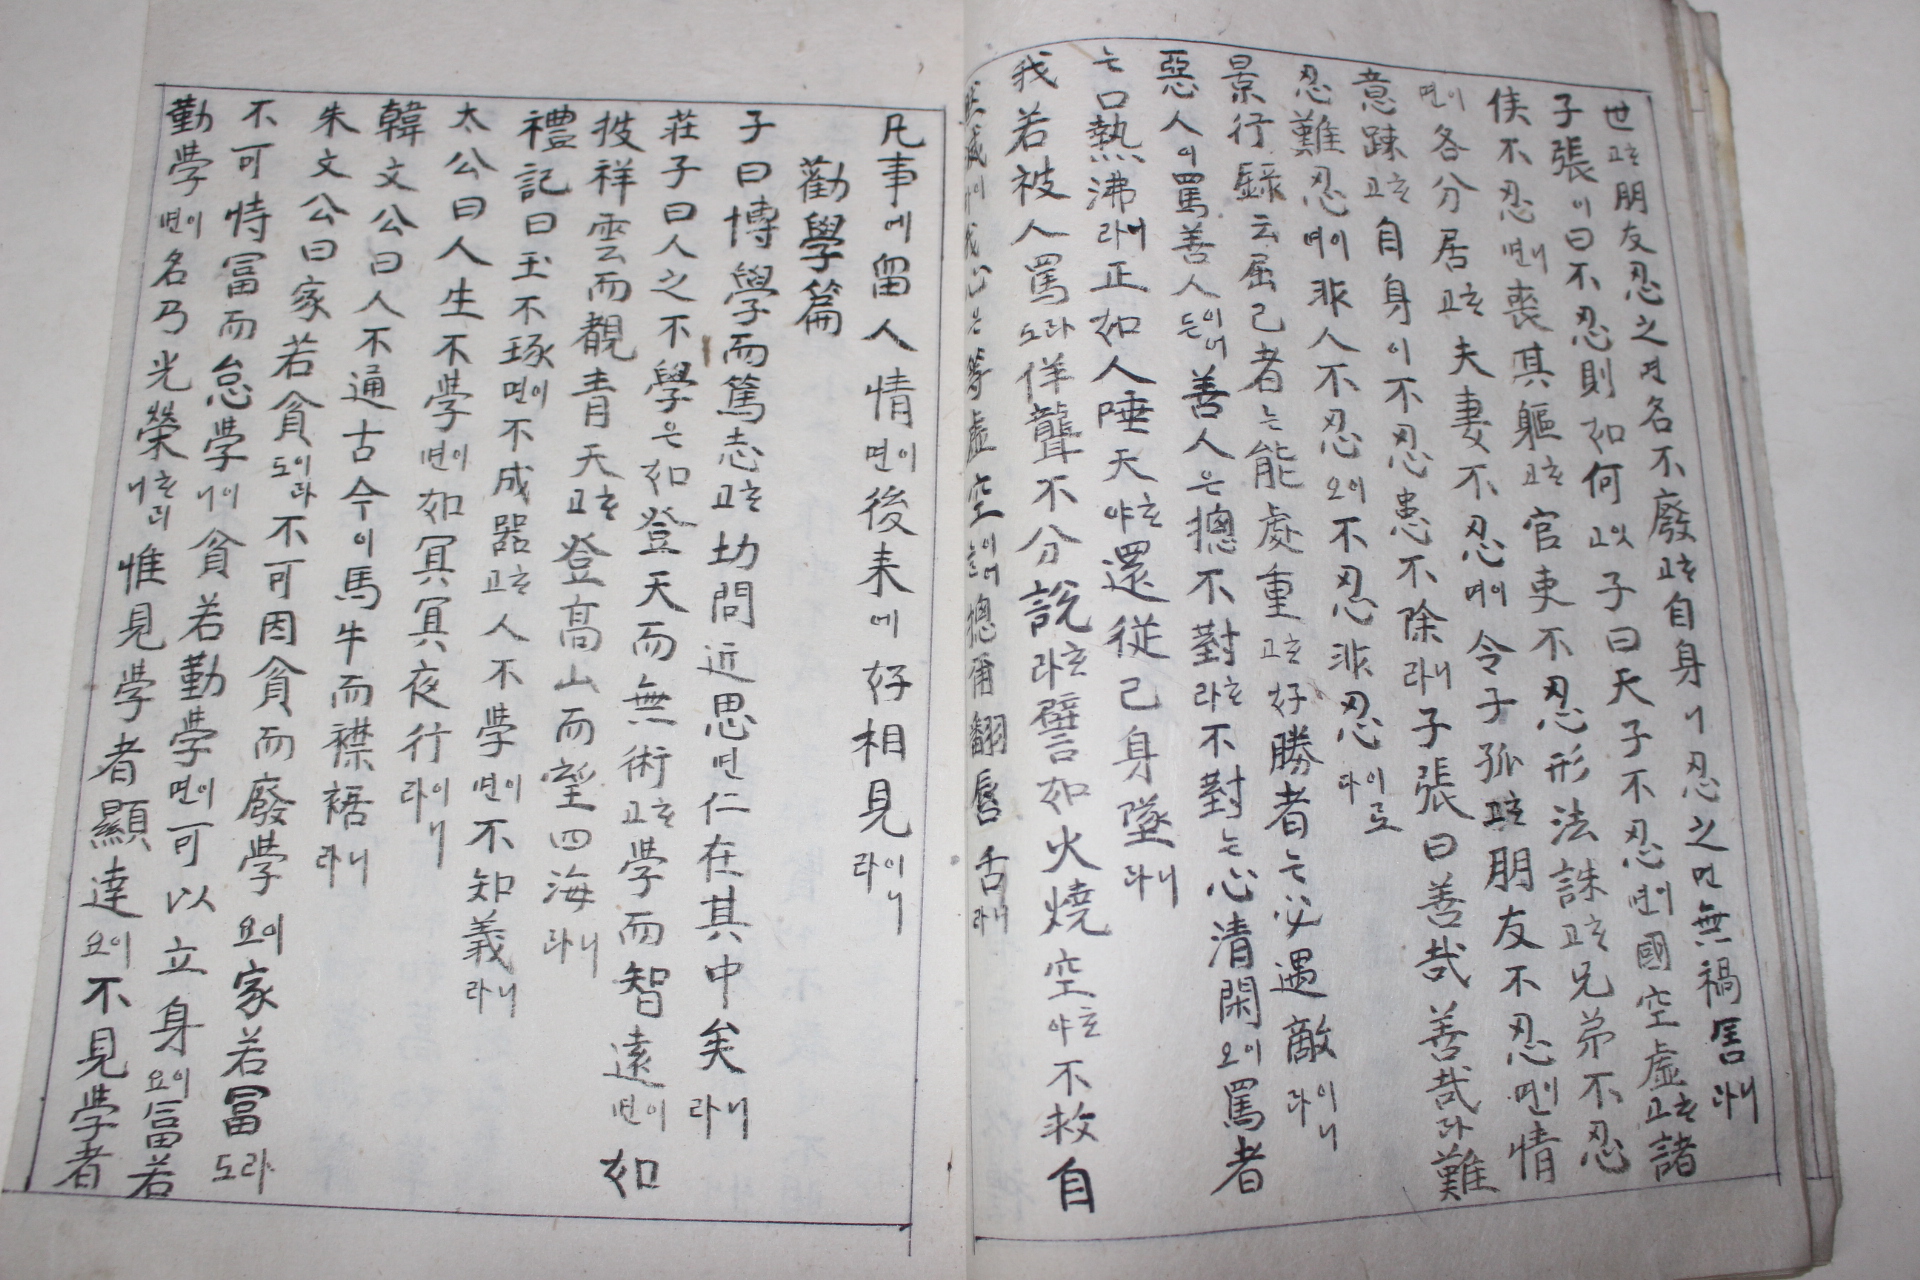 世고호朋友忍之면名不廢고호自身이忍之면無禍害라니
子張이曰不忍則如何以子曰天子不忍면이國空虛고호諸
侯不忍면이喪其軀고호官吏不忍形法誅고호兄弟不忍
면이各分居고호夫妻不忍면이令子孤고호朋友不忍면이情
意踈고호自身이不忍患不除라니子張曰善哉善哉라難
忍難忍면이非人不忍오이不忍非忍다이로
景行錄云屈己者는能處重고호好勝者는必遇敵라이니
惡人이罵善人든이어善人은摠不對라호不對는心清閑오이罵者
는口熱沸라며正如人唾天야호還從己身墜라니
我若被人罵도라佯聾不分說라호譬如火燒空야호不救自
然滅이我心은等虛空총이어摠爾翻唇舌라니
凡事에留人情면이後来에好相見라이니
勸學篇
子曰博學而篤志고호切問近思면仁在其中矣라니
莊子曰人之不學은如登天而無術고호學而智遠면이如
披祥雲而覩青天고호登高山而望四海라니
禮記曰玉不琢면이不成器고호人不學면이不知義라니
太公曰人生不學면이如冥冥夜行라이니
韓文公曰人不通古今이馬牛而襟裾라니
朱文公曰家若貧도이라不可因貧而廢學요이家若冨도라
不可恃冨而怠學이니貧若勤學면이可以立身요이冨若
勤學면이名乃光榮니호리惟見學者顯達요이不見學者